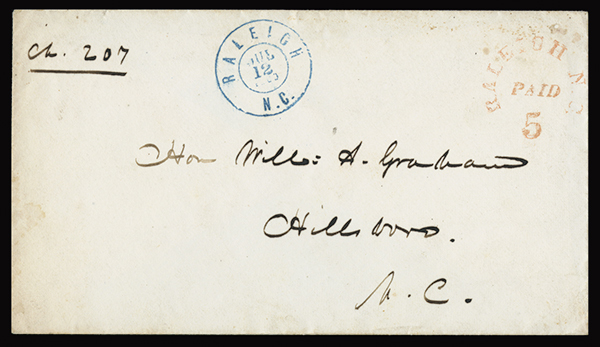 Ch. 207
RALEIGH
JUL
12
N.C.
RALEIGH N.C.
PAID
5
Hon Will: A. Graham
Hillsboro.
N. C.